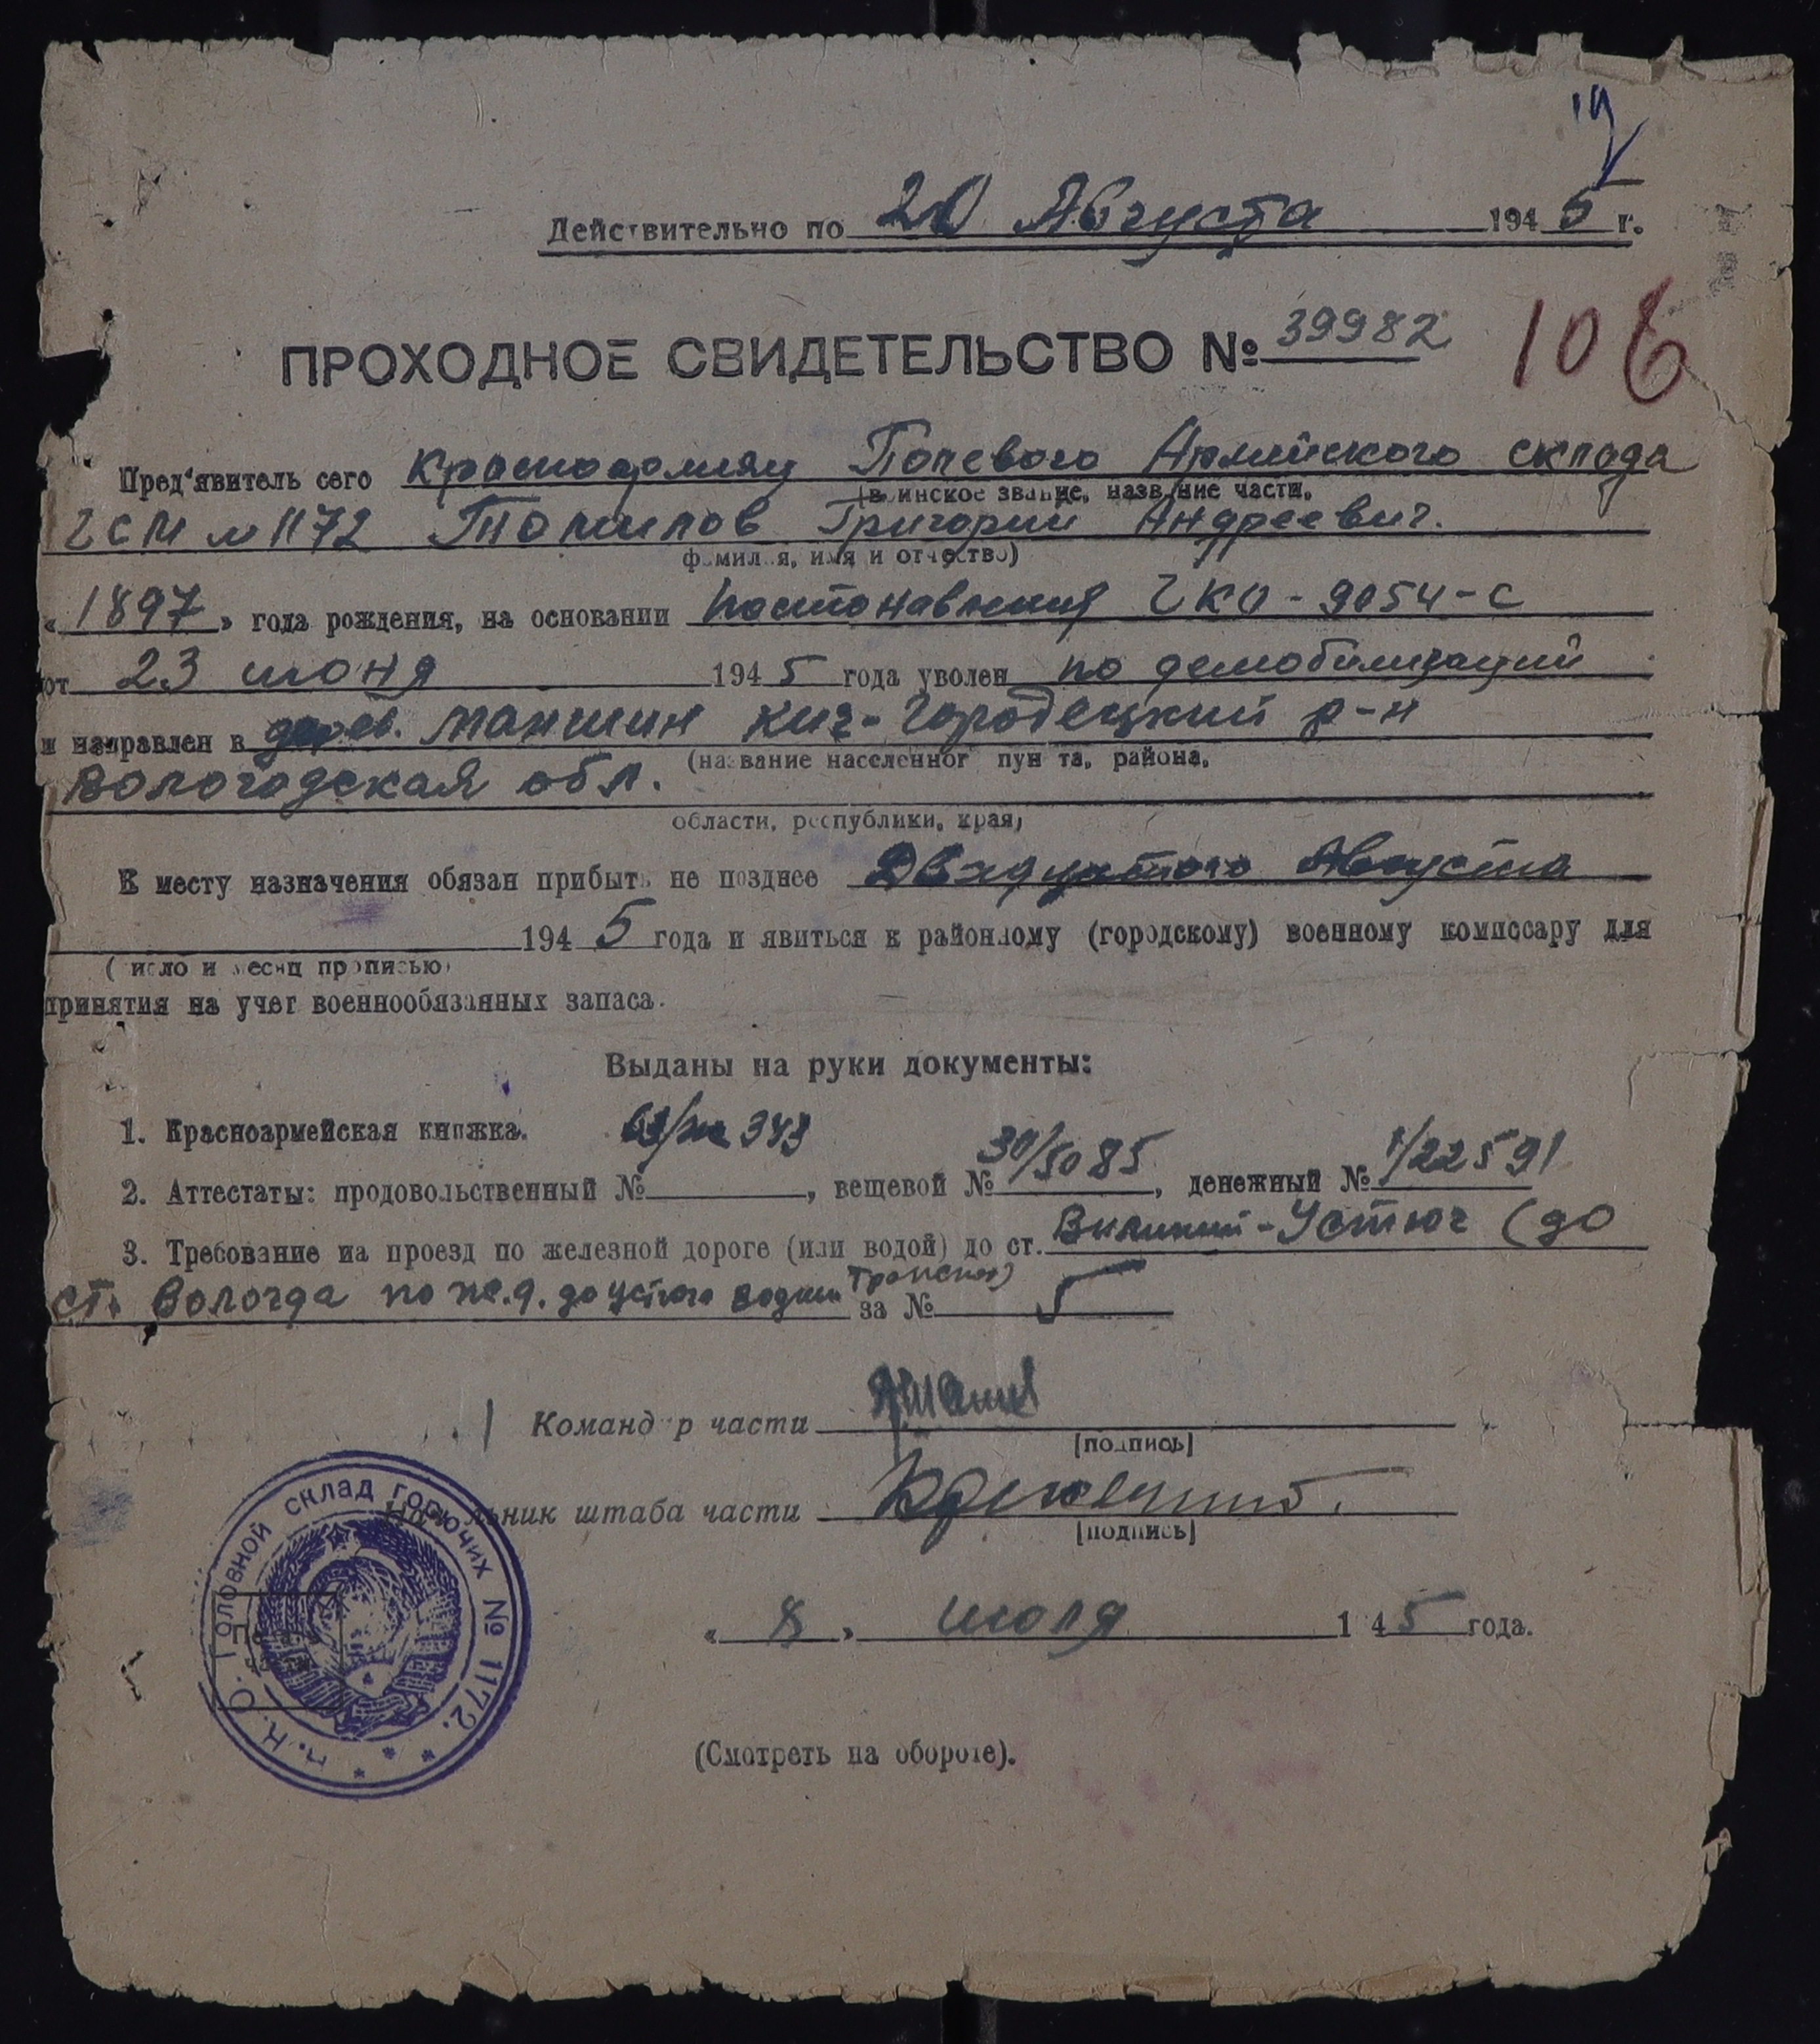 Действительно по 20 Августа 1945 г.
ПРОХОДНОЕ СВИДЕТЕЛЬСТВО № 39982
106
Пред'явитель сего Красноармеец Полевого Армейского склада
(воинское звание, название части,
ГСМ № 1172 Томилов Григорий Андреевич.
фамилия, имя и отчество)
«1897» года рождения, на основании Постановления ГКО-9054-с
от 23 июня 1945 года уволен по демобилизаций
и направлен в дерев. Маншин Кич-Городецкий р-н
(название населенного пункта, района,
Вологодская обл.
области, республики, края)
К месту назначения обязан прибыть не позднее Двадцатого Августа
1945 года и явиться к районному (городскому) военному комиссару для
(число и месяц прописью)
принятия на учет военнообязанных запаса.
Выданы на руки документы:
1. Красноармейская книжка. 343
2. Аттестаты: продовольственный №, вещевой № 30/5085, денежный № 1/22591
3. Требование на проезд по железной дороге (или водой) до ст. Великий-Устюг (до
ст. Вологда по ж.д. до Устюга водным транспор)
за №
Командир части
[подпись]
Начальник штаба части
[подпись]
П.Н.О. Головной склад горючих № 1172.
Печать
части
«8» июля 145 года.
(Смотреть на обороте).